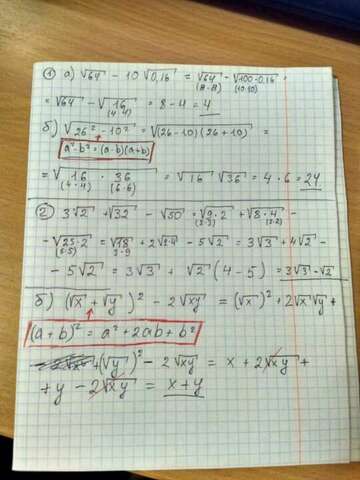 ① а) √64 - 10√0,16 = √64 - √100·0,16 =
(8·8) (10·10)
= √64 - √16 = 8 - 4 = 4
(4·4)
б) √26² - 10² = √(26-10)(26+10) =
a² - b² = (a-b)(a+b)
= √16 · 36 = √16 √36 = 4 · 6 = 24
(4·4) (6·6)
② 3√2 + √32 - √50 = √9·2 + √8·4 -
(3·3) (2·2)
- √25·2 = √18 + 2√2·4 - 5√2 = 3√3 + 4√2 -
(5·5) 3·9
- 5√2 = 3√3 + √2 (4-5) = 3√3 - √2
б) (√x + √y)² - 2√xy = (√x)² + 2√x√y +
(a+b)² = a² + 2ab + b²
+ (√y)² - 2√xy = x + 2√xy +
+ y - 2√xy = x + y